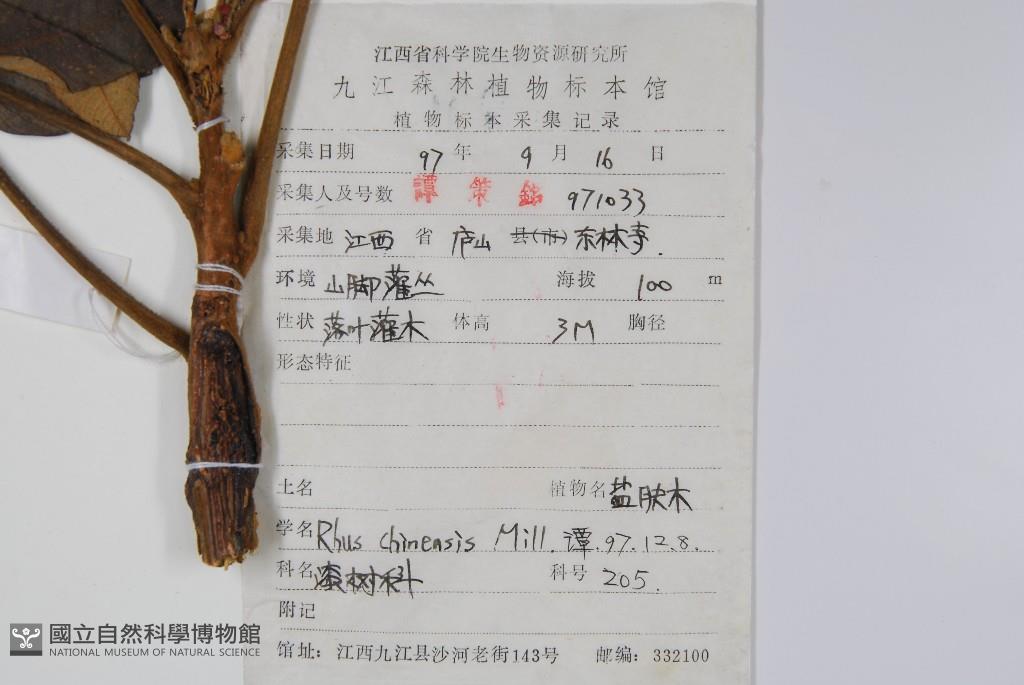 江西省科学院生物资源研究所
九江森林植物标本馆
植物标本采集记录
采集日期 97 年 9 月 16 日
采集人及号数 譚策銘 971033
采集地 江西 省 庐山 县(市) 东林寺.
环境 山脚灌丛 海拔 100 m
性状 落叶灌木 体高 3M 胸径
形态特征
土名 植物名 盐肤木
学名 Rhus chinensis Mill. 谭.97.12.8.
科名 漆树科 科号 205.
附记
馆址: 江西九江县沙河老街143号 邮编: 332100
國立自然科學博物館
NATIONAL MUSEUM OF NATURAL SCIENCE